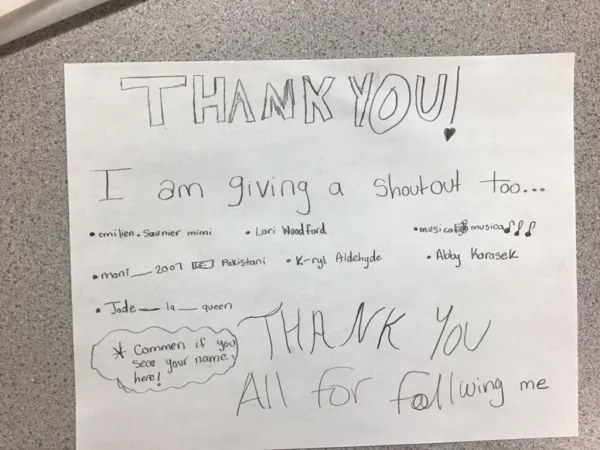 THANK YOU!
I am giving a shoutout too...
• emilien.saunier mimi • Lori Woodford • musical musica
• mani__2007 Pakistani • K-nyl Aldehyde • Abby Karasek
• Jade__la__queen
* Commen if you
see your name
here!
THANK YOU
All for follwing me